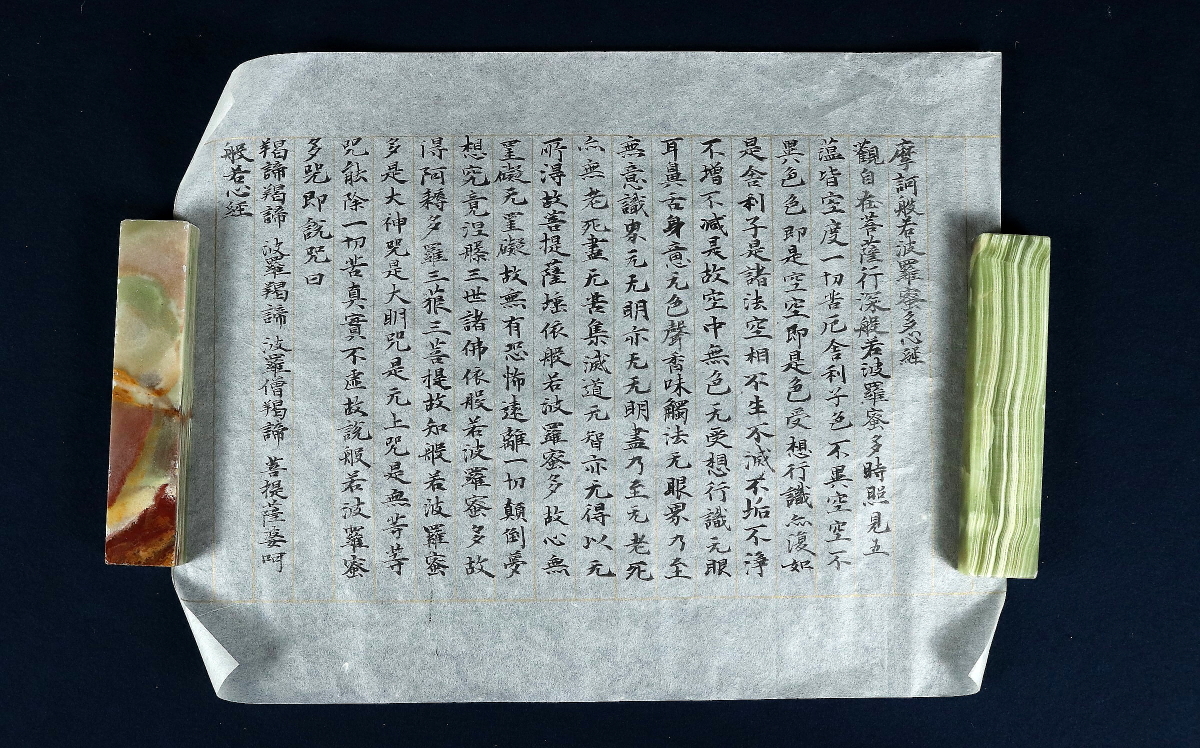 摩訶般若波羅蜜多心経
觀自在菩薩行深般若波羅蜜多時照見五
蕴皆空度一切苦厄舍利子色不異空空不
異色色即是空空即是色受想行識亦復如
是舍利子是諸法空相不生不滅不垢不浄
不增不减是故空中無色无受想行識无眼
耳鼻舌身意无色聲香味觸法无眼界乃至
無意識界无无明亦无无明盡乃至无老死
亦無老死盡无苦集滅道无智亦无得以无
所得故菩提薩埵依般若波羅蜜多故心無
罣礙无罣礙故無有恐怖遠離一切顛倒夢
想究竟涅槃三世諸佛依般若波羅蜜多故
得阿耨多羅三藐三菩提故知般若波羅蜜
多是大神咒是大明咒是无上咒是無等等
咒能除一切苦真實不虚故説般若波羅蜜
多咒即説咒曰
羯諦羯諦 波羅羯諦 波羅僧羯諦 菩提薩婆呵
般若心経